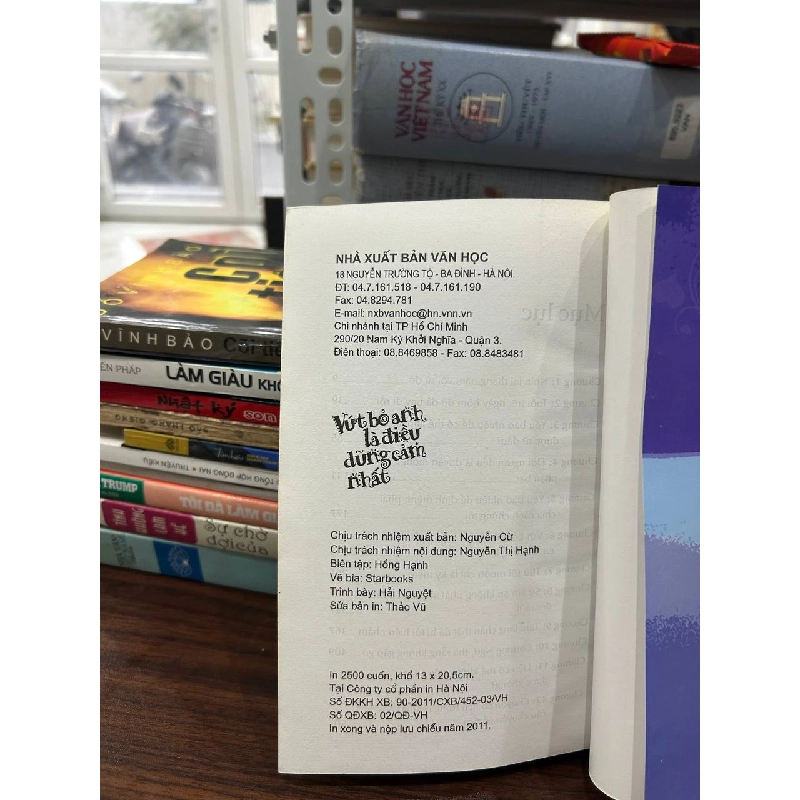 VĂN HỌC
VIỆT NAM
THẾ KỶ XX
895.9223
VAN
VĨNH BẢO
LÀM GIÀU KHÔ
Nhật ký
SON
TỔNG HỢP ĐỒNG NAI • TRUYỆN KIỀU
TRUMP
TÔI ĐÃ LÀM GI
Sự chờ
đợi của
NHÀ XUẤT BẢN VĂN HỌC
18 NGUYỄN TRƯỜNG TỘ - BA ĐÌNH - HÀ NỘI
ĐT: 04.7.161.518 - 04.7.161.190
Fax: 04.8294.781
E-mail: nxbvanhoc@hn.vnn.vn
Chi nhánh tại TP Hồ Chí Minh
290/20 Nam Kỳ Khởi Nghĩa - Quận 3.
Điện thoại: 08.8469858 - Fax: 08.8483481
Vứt bỏ anh
là điều
dũng cảm
nhất
Chịu trách nhiệm xuất bản: Nguyễn Cừ
Chịu trách nhiệm nội dung: Nguyễn Thị Hạnh
Biên tập: Hồng Hạnh
Vẽ bìa: Starbooks
Trình bày: Hải Nguyệt
Sửa bản in: Thảo Vũ
In 2500 cuốn, khổ 13 x 20,5cm.
Tại Công ty cổ phần in Hà Nội
Số ĐKKH XB: 90-2011/CXB/452-03/VH
Số QĐXB: 02/QĐ-VH
In xong và nộp lưu chiểu năm 2011.